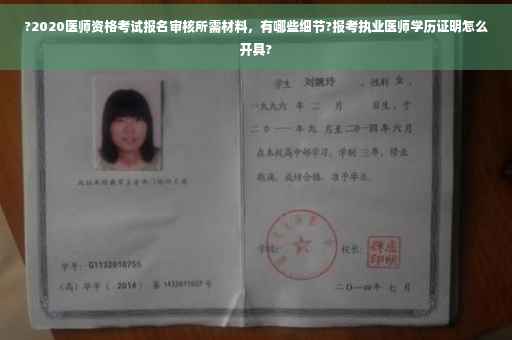 ?2020医师资格考试报名审核所需材料，有哪些细节?报考执业医师学历证明怎么
开具?
学生 刘婉玲 ，性别 女 ，
一九九六 年 二 月 日生，于
二〇一一年九 月至二〇一四年 六 月
在本校高中部学习，学制 三年，修业
期满，成绩合格，准予毕业。
学号： G1132010755
学校：
校长：
（高）毕字（ 2014 ）第 1432011027 号
二〇一四年 七 月